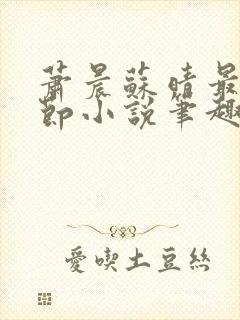 蕭晨蘇晴最
節小說筆趣
愛喫土豆絲